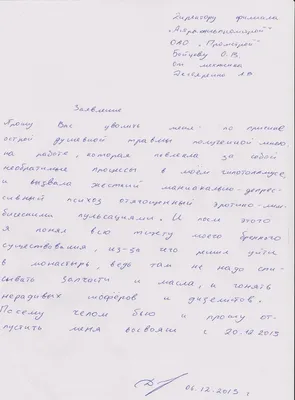 Директору филиала
ОАО „Промприб"
Бойцеву О.В.
от механика
Заявление
Прошу Вас уволить меня по причине
острой душевной травмы полученной мною
на работе, которая повлекла за собой
необратимые процессы в моем гипоталамусе,
и вызвала жесткий маниакально-депрес-
сивный психоз отягощенный эротико-мни-
пульсациями. И после этого
я понял всю тщету моего бренного
существования, из-за чего решил уйти
в монастырь, ведь там не надо спи-
сывать запчасти и масла, и гонять
нерадивых шоферов и дизелистов.
Потому челом бью и прошу от-
пустить меня восвояси с 20.12.2013
06.12.2013 г